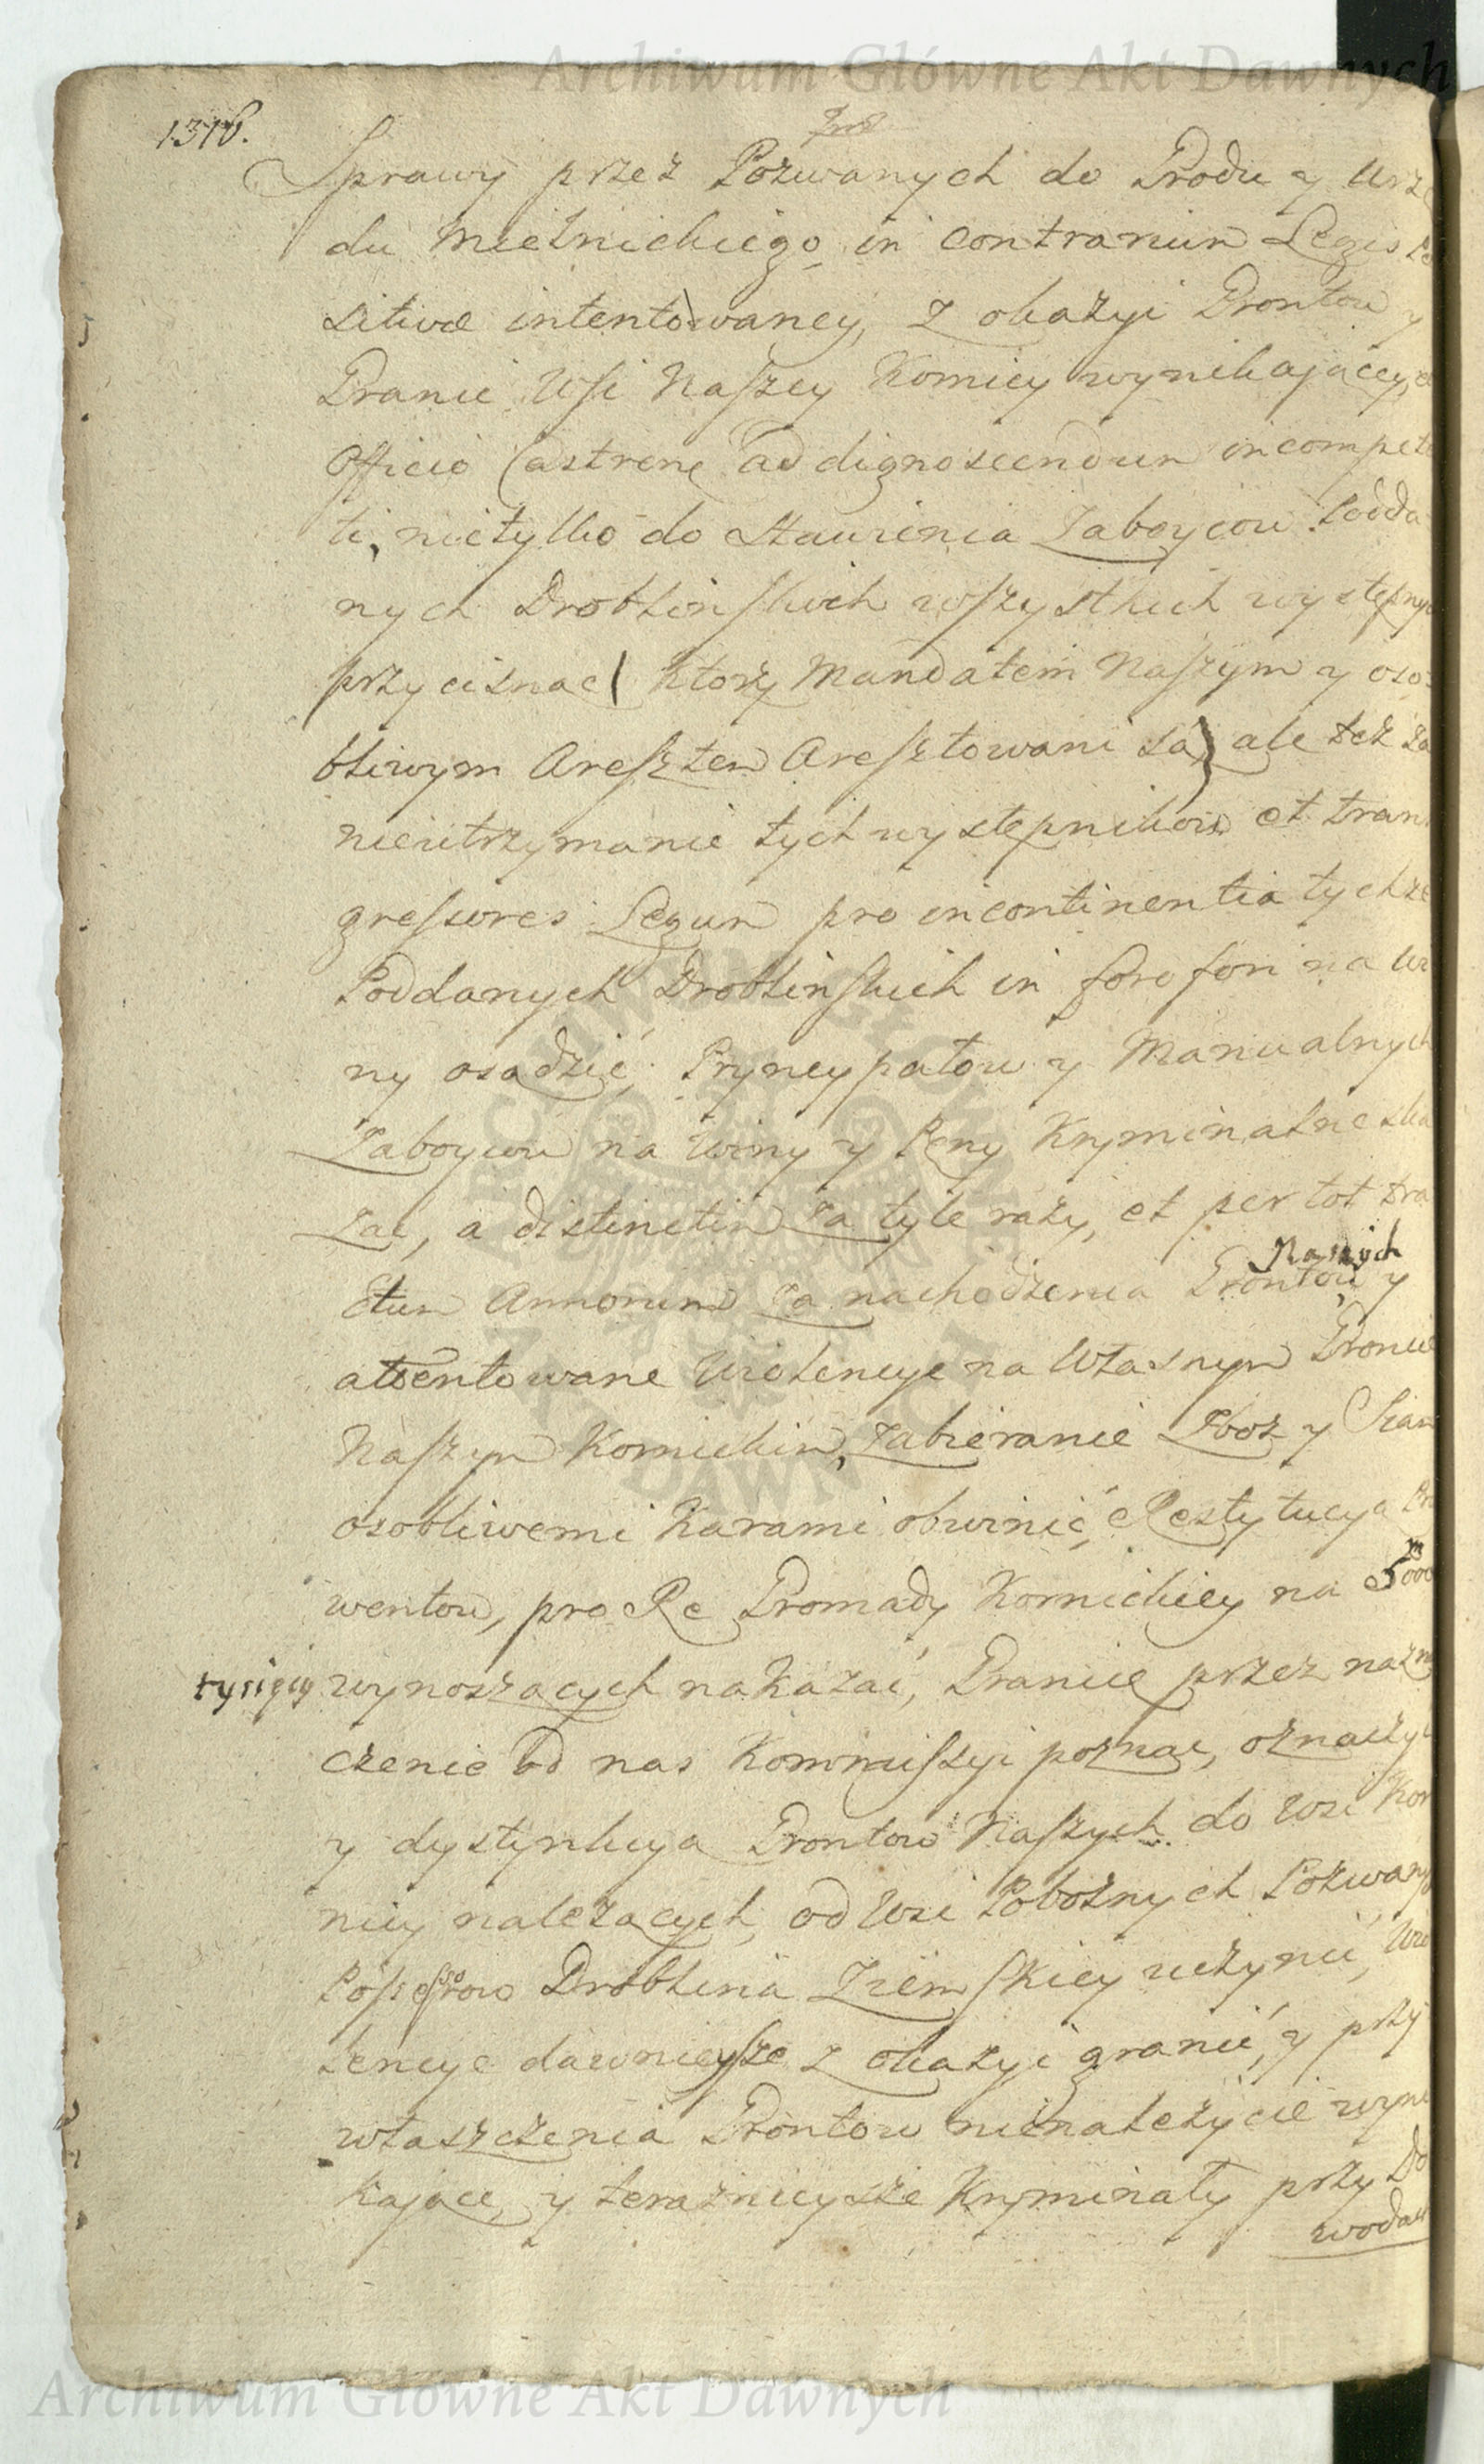 Archiwum Główne Akt Dawnych
1316.
Sprawy przez Pozwanych do Grodu y Urzę
du Mielnickiego in contrarium Legis Po
sitivæ intentowaney, z okazyi Grontow y
Granic Wsi Naszey Kornicy wynikaiącey,
Officio Castrenẹ ad dignoscendum incompeten
ti, nietylko do Stawienia Zaboycow Podda
nych Droblinskich wszystkich występnych
przycisnąc ( ktorzy Mandatem Naszym y oso
bliwym Aresztem Aresztowani są ) ale też za
nieutrzymanie tych występnikow et trans
gressores Legum pro incontinentia tychże
Poddanych Droblinskich in foro fori na wi
ny osądzić, Pryncypałow y Manualnych
Zaboycow na Winy y Peny Kryminalne ska
zać, a distinctim za tyle razy, et per tot tra
ctum Annorum za nachodzenia Grontow Naszych y
attentowane Violencye na Własnym Groncie
Naszym Kornickim, zabieranie Zboz y Sian
osobliwemi Karami obwinić, Restytucyą Pro
wentow, pro Re Gromady Kornickiey na 5000
tysięcy wynoszących nakazać, Granice przez nazna
czenie od nas Kommissyi poznać, oznaczyć
y dystynkcyą Grontow Naszych do Wsi Kor
nicy należących, od Wsi Pobożnych Pozwanych
Possessorow Droblina Ziemskiey uczynić, Vio
lencye dawnieysze z okazyi granic, y przy
właszczenia Grontow nienależycie wyni
kaiące, y teraźnieysze Kryminały przy Do
wodach
Archiwum Główne Akt Dawnych